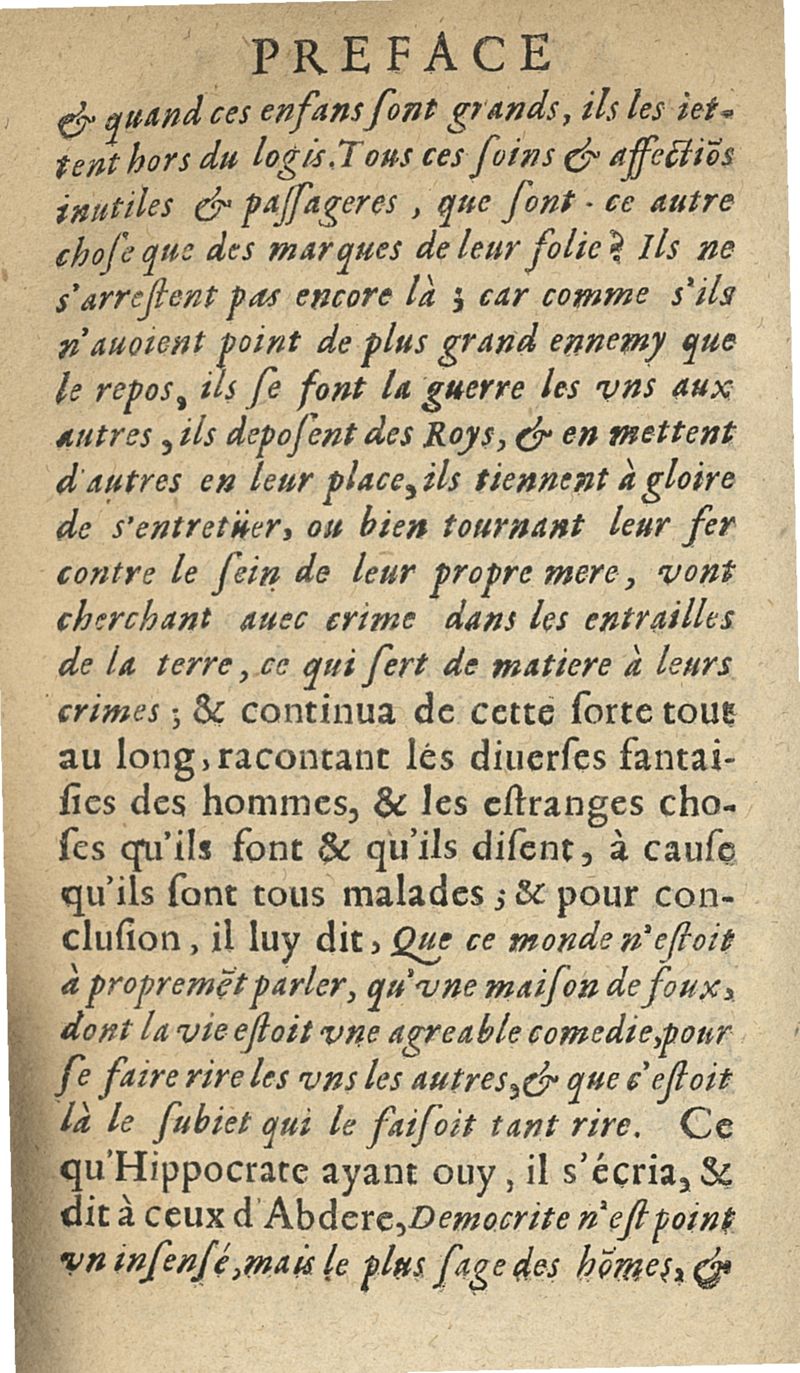 PREFACE
& quand ces enfans ſont grands, ils les iet-
tent hors du logis. Tous ces ſoins & affectiõs
inutiles & paſſageres, que ſont-ce autre
choſe que des marques de leur folie? Ils ne
s'arreſtent pas encore là; car comme s'ils
n'auoient point de plus grand ennemy que
le repos, ils ſe font la guerre les vns aux
autres, ils depoſent des Roys, & en mettent
d'autres en leur place, ils tiennent à gloire
de s'entretüer, ou bien tournant leur fer
contre le ſein de leur propre mere, vont
cherchant auec crime dans les entrailles
de la terre, ce qui ſert de matiere à leurs
crimes; & continua de cette ſorte tout
au long, racontant les diuerſes fantai-
ſies des hommes, & les eſtranges cho-
ſes qu'ils font & qu'ils diſent, à cauſe
qu'ils ſont tous malades; & pour con-
cluſion, il luy dit, Que ce monde n'eſtoit
à propremẽt parler, qu'vne maiſon de foux,
dont la vie eſtoit vne agreable comedie, pour
ſe faire rire les vns les autres, & que c'eſtoit
là le ſubiet qui le faiſoit tant rire. Ce
qu'Hippocrate ayant ouy, il s'écria, &
dit à ceux d'Abdere, Democrite n'eſt point
vn inſenſé, mais le plus ſage des hõmes, &